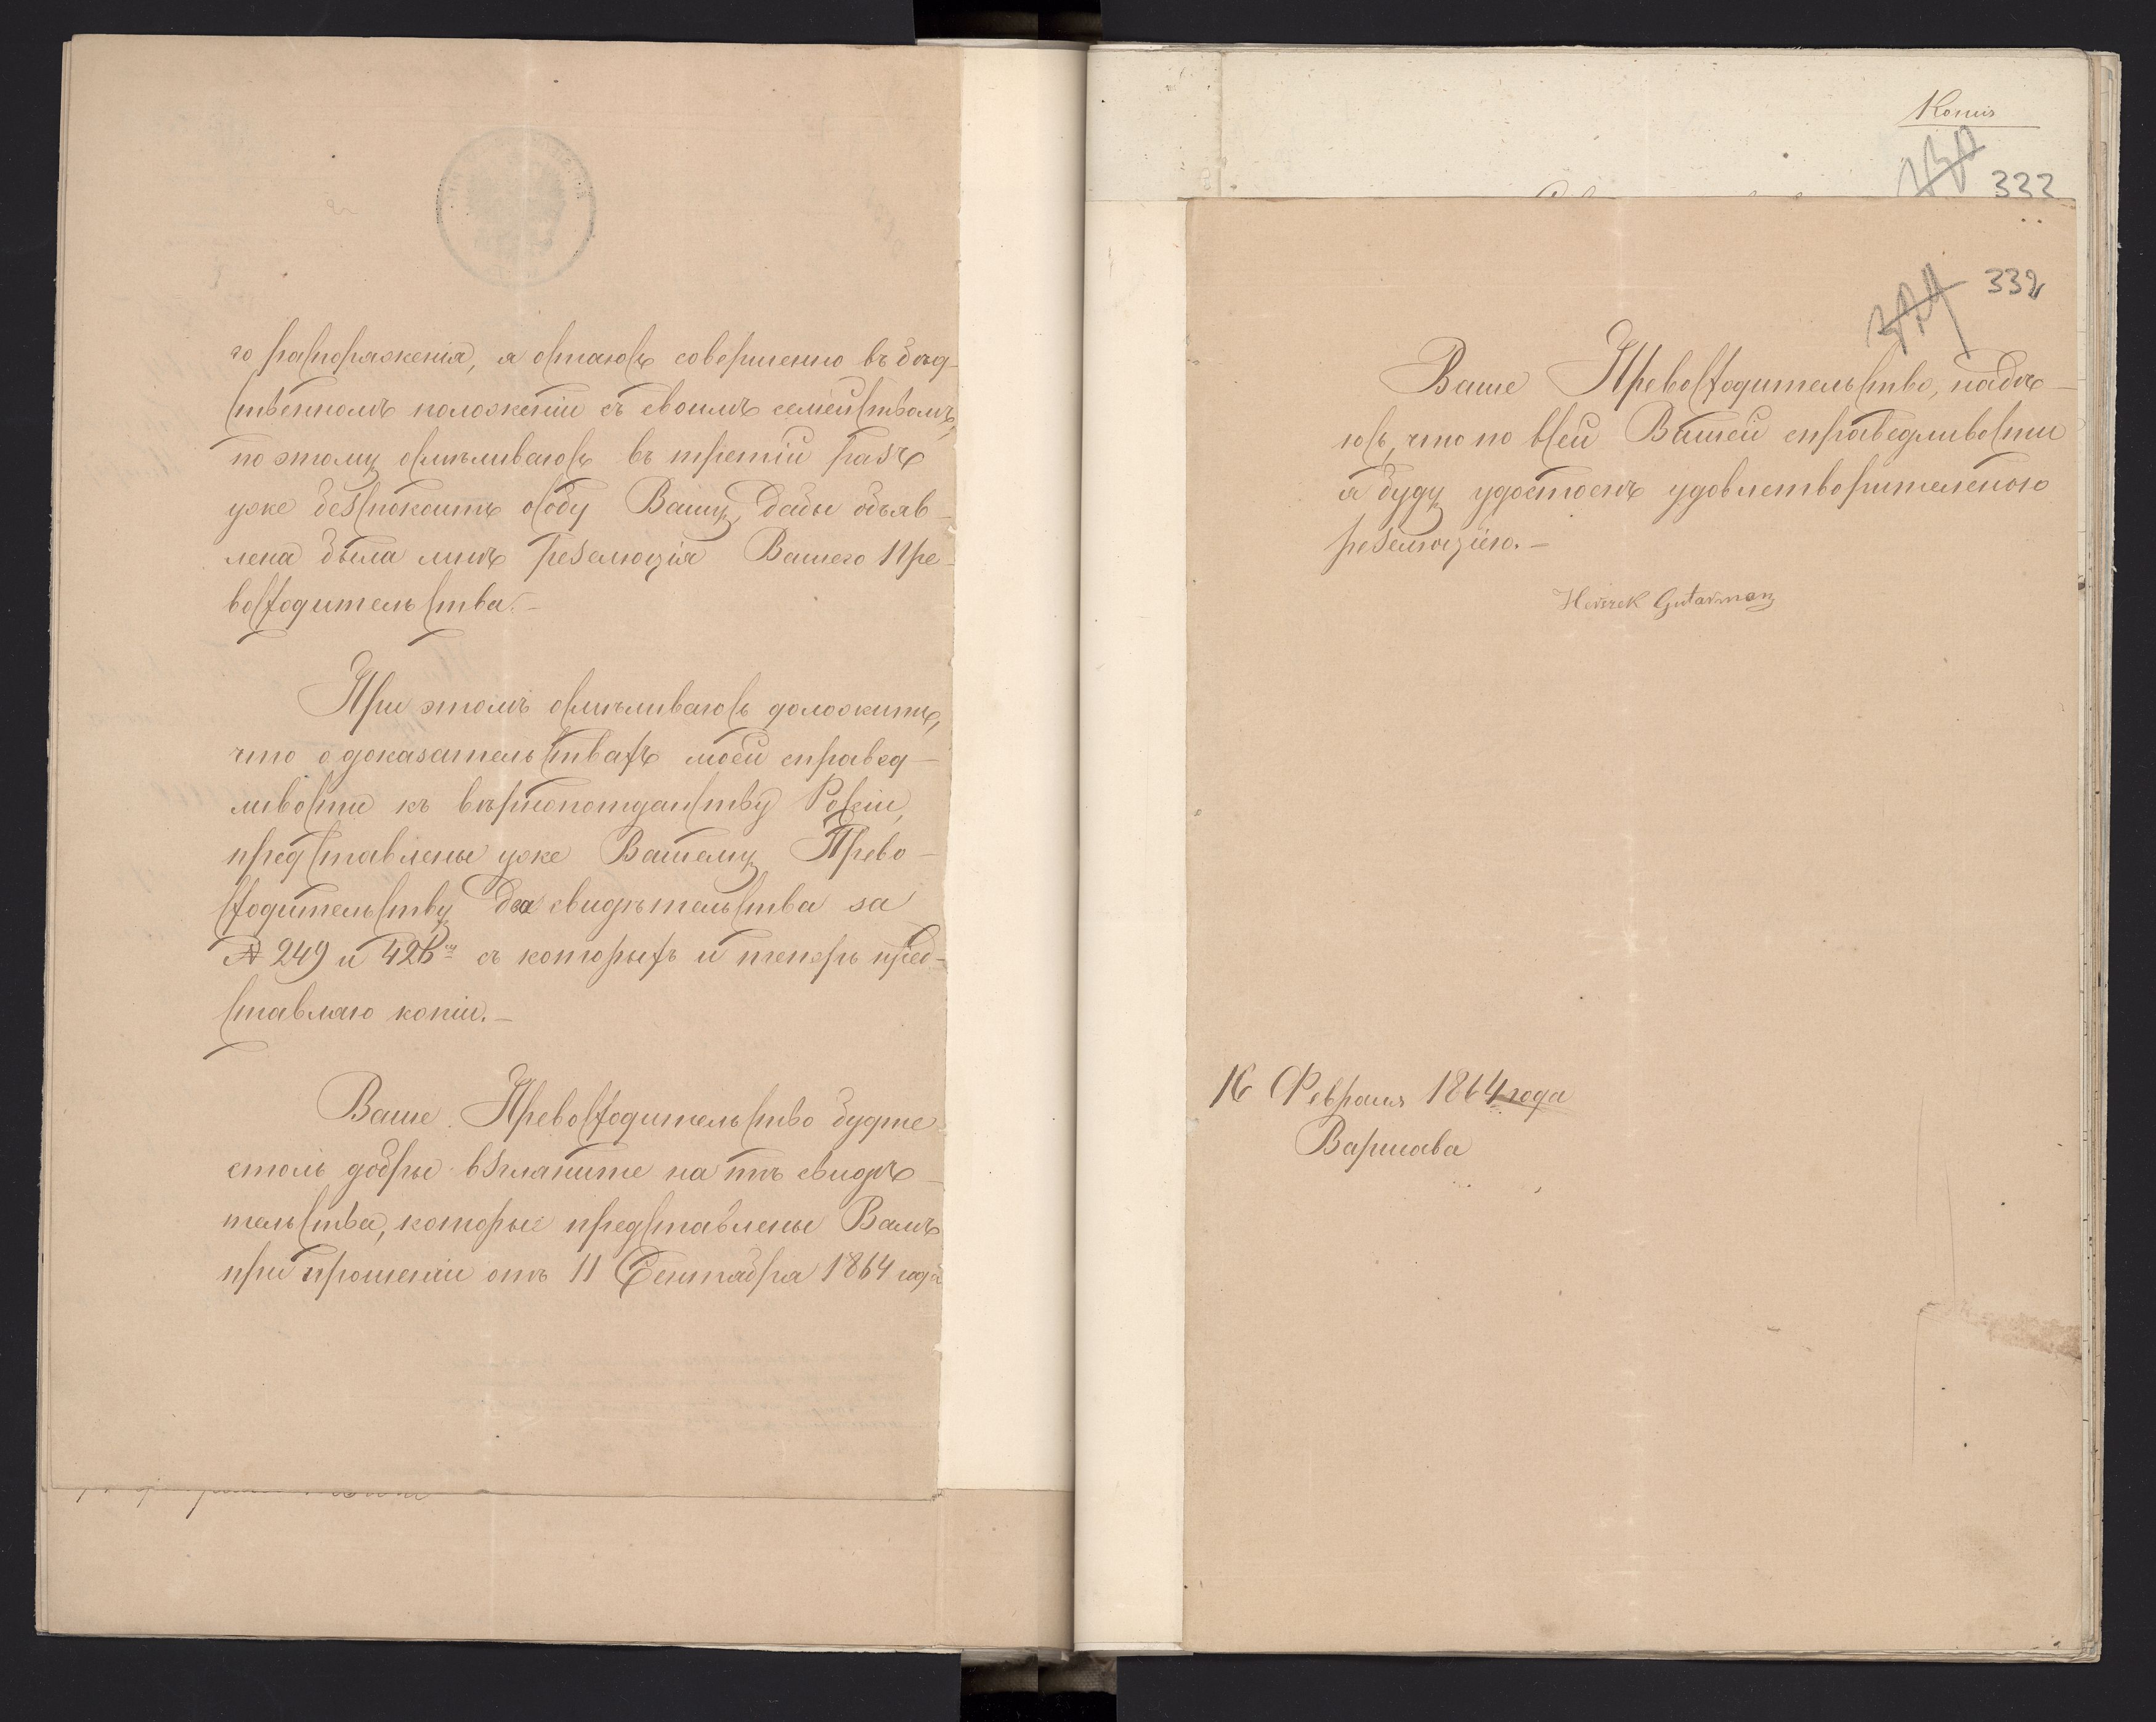 го распоряженія, я остаюсь совершенно въ бѣд-
ственномъ положеніи съ своимъ семействомъ,
по этому осмѣливаюсь въ третій разъ
уже безпокоить особу Вашу, дабы объяв-
лена была мнѣ резелюція Вашего Пре-
восходительства.-
При этомъ осмѣливаюсь доложить,
что о доказательствахъ моей справед-
ливости къ вѣрнопотданству Росіи,
представлены уже Вашему Прево-
сходительству два свидѣтельства за
№ 249 и 426 съ которыхъ и теперь пред-
ставляю копіи.-
Ваше Превосходительство будте
столь добры взгляните на тѣ свидѣ-
тельства, которые представлены Вамъ
при прошеніи отъ 11 Сентября 1864 года
Копия
333
332
Ваше Превосходительство, надѣ-
юсь, что по всей Вашей справедливости
я буду удостоенъ удовлетворительною
резелюціею.-
Herszek Gutarman
16 Февраля 1864 года
Варшава